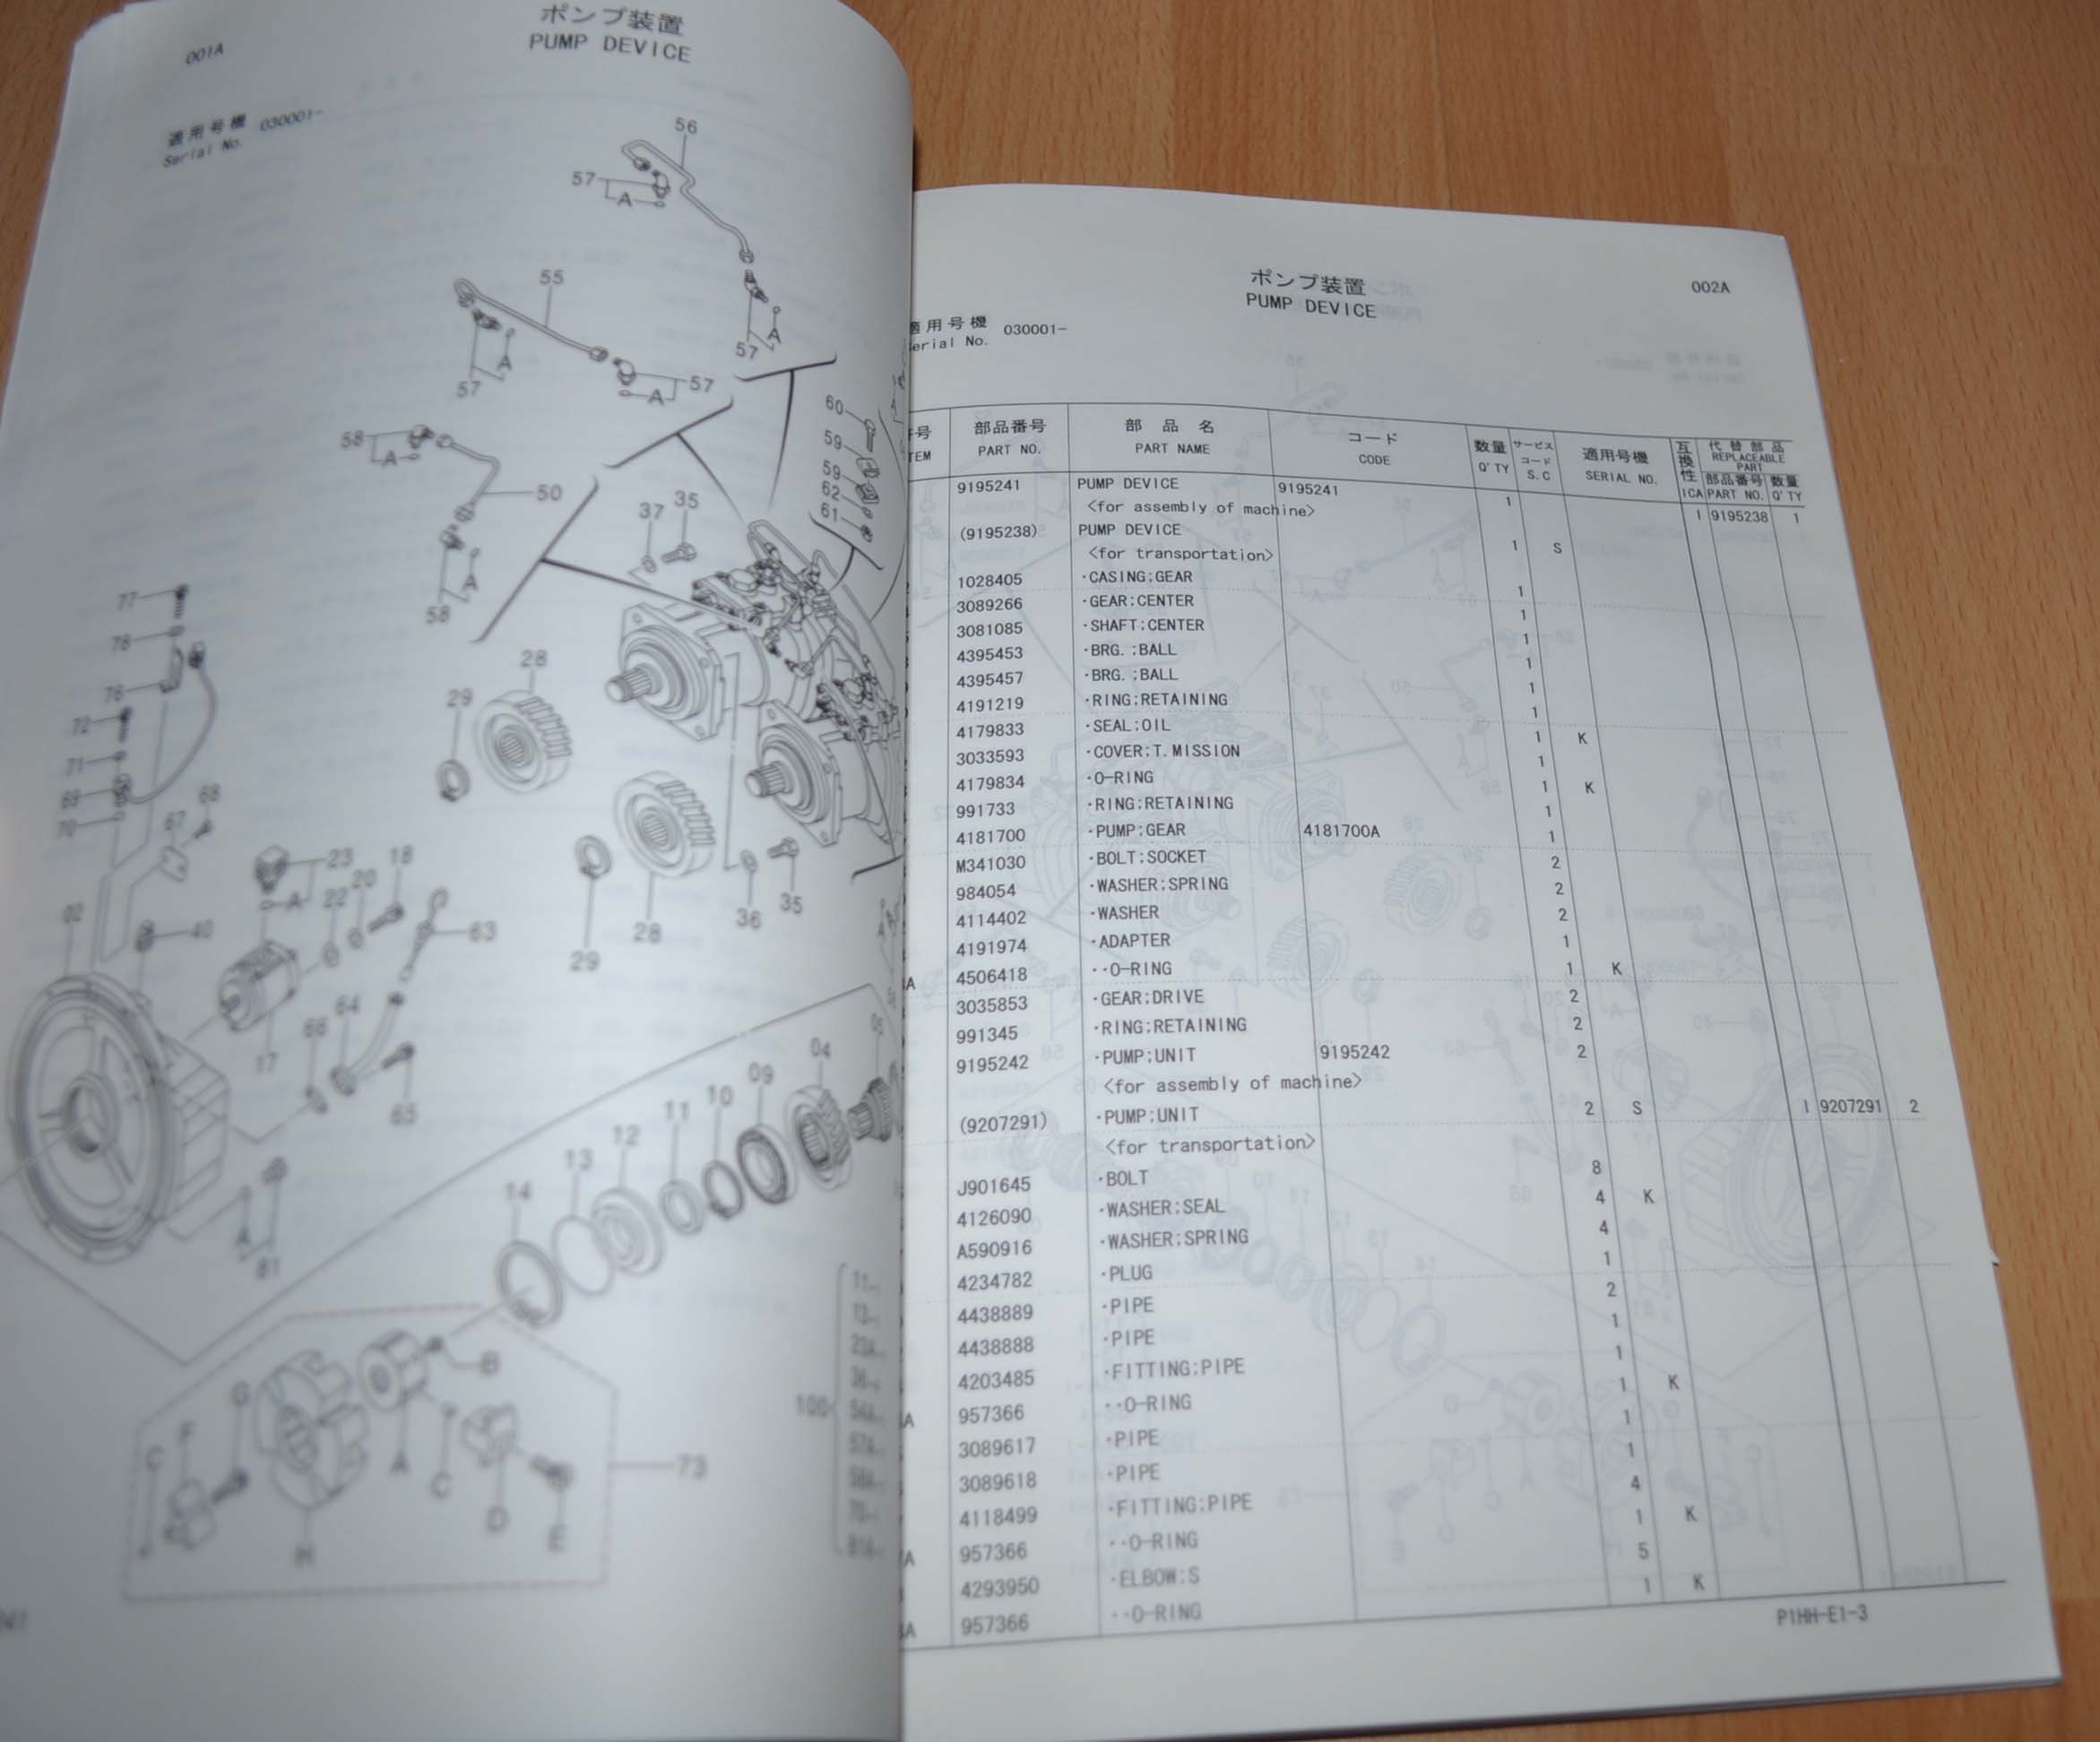 001A
ポンプ装置
PUMP DEVICE
適用号機 030001-
Serial No.
56
57
A
55
57
A
57
A
57
A
60
59
59
62
61
58
A
50
58
A
37
35
77
76
72
71
70
28
29
28
29
36
35
23
A
22
20
18
63
40
17
64
65
04
09
10
11
12
13
14
A
81
B
G
F
C
A
C
D
E
H
73
100
ポンプ装置
PUMP DEVICE
002A
適用号機 030001-
erial No.
号 部品番号 部 品 名 コード 数量 サービスコード 適用号機 互換性 代替部品
TEM PART NO. PART NAME CODE Q'TY S.C SERIAL NO. ICA REPLACEABLE PART
部品番号 数量
PART NO. Q'TY
9195241 PUMP DEVICE 9195241 1 I 9195238 1
<for assembly of machine>
(9195238) PUMP DEVICE 1 S
<for transportation>
1028405 ·CASING;GEAR 1
3089266 ·GEAR;CENTER 1
3081085 ·SHAFT;CENTER 1
4395453 ·BRG. ;BALL 1
4395457 ·BRG. ;BALL 1
4191219 ·RING;RETAINING 1
4179833 ·SEAL;OIL 1 K
3033593 ·COVER;T.MISSION 1
4179834 ·O-RING 1 K
991733 ·RING;RETAINING 1
4181700 ·PUMP;GEAR 4181700A 1
M341030 ·BOLT;SOCKET 2
984054 ·WASHER;SPRING 2
4114402 ·WASHER 2
4191974 ·ADAPTER 1
A 4506418 ··O-RING 1 K
3035853 ·GEAR;DRIVE 2
991345 ·RING;RETAINING 2
9195242 ·PUMP;UNIT 9195242 2 I 9207291 2
<for assembly of machine>
(9207291) ·PUMP;UNIT 2 S
<for transportation>
J901645 ·BOLT 8
4126090 ·WASHER;SEAL 4 K
A590916 ·WASHER;SPRING 4
4234782 ·PLUG 1
4438889 ·PIPE 2
4438888 ·PIPE 1
4203485 ·FITTING;PIPE 1
A 957366 ··O-RING 1 K
3089617 ·PIPE 1
3089618 ·PIPE 1
4118499 ·FITTING;PIPE 4
A 957366 ··O-RING 1 K
4293950 ·ELBOW;S 5
A 957366 ··O-RING 1 K
P1HH-E1-3